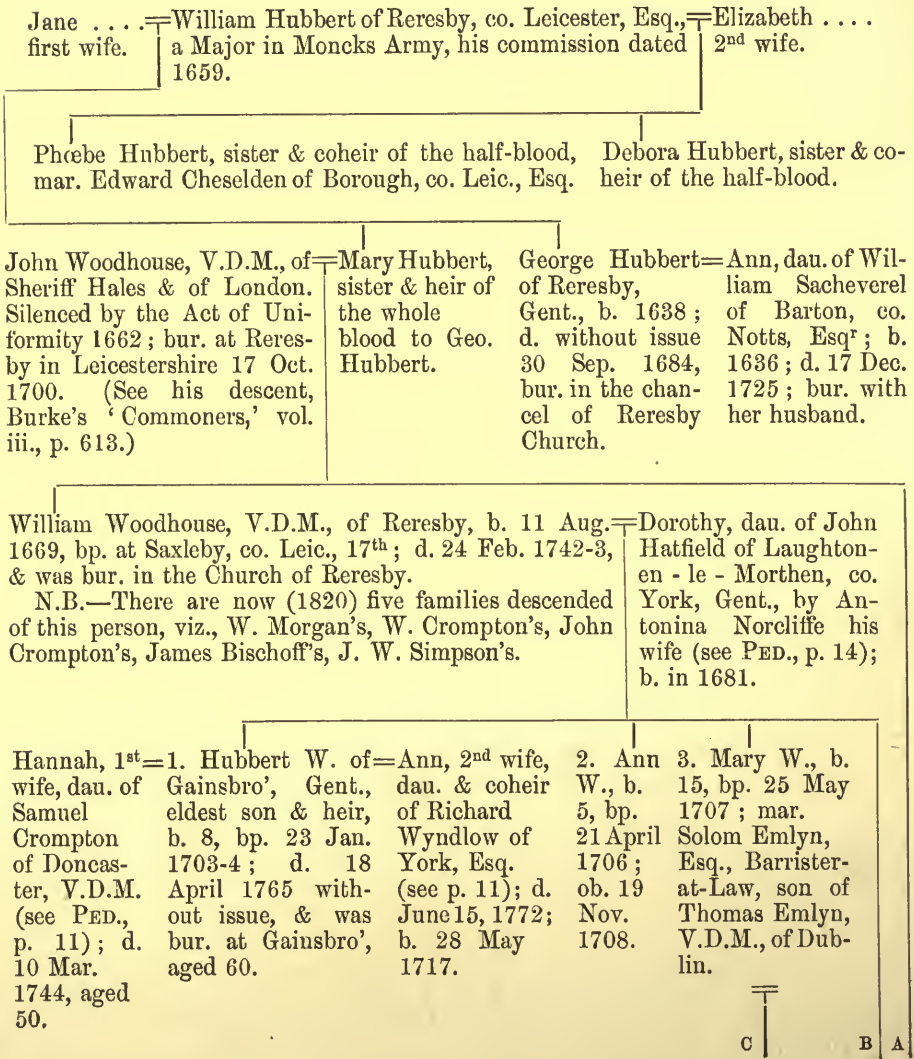 Jane . . . . ╤ William Hubbert of Reresby, co. Leicester, Esq., ╤ Elizabeth . . . .
first wife. a Major in Moncks Army, his commission dated 2nd wife.
1659.
Phœbe Hnbbert, sister & coheir of the half-blood,
mar. Edward Cheselden of Borough, co. Leic., Esq.
Debora Hubbert, sister & co-
heir of the half-blood.
John Woodhouse, V.D.M., of
Sheriff Hales & of London.
Silenced by the Act of Uni-
formity 1662 ; bur. at Reres-
by in Leicestershire 17 Oct.
1700. (See his descent,
Burke's ‘ Commoners,’ vol.
iii., p. 613.)
╤ Mary Hubbert,
sister & heir of
the whole
blood to Geo.
Hubbert.
George Hubbert =
of Reresby,
Gent., b. 1638 ;
d. without issue
30 Sep. 1684,
bur. in the chan-
cel of Reresby
Church.
Ann, dau. of Wil-
liam Sacheverel
of Barton, co.
Notts, Esqr ; b.
1636 ; d. 17 Dec.
1725 ; bur. with
her husband.
William Woodhouse, V.D.M., of Reresby, b. 11 Aug. ╤
1669, bp. at Saxleby, co. Leic., 17th ; d. 24 Feb. 1742-3,
& was bur. in the Church of Reresby.
N.B.—There are now (1820) five families descended
of this person, viz., W. Morgan's, W. Crompton's, John
Crompton's, James Bischoff's, J. W. Simpson's.
Dorothy, dau. of John
Hatfield of Laughton-
en - le - Morthen, co.
York, Gent., by An-
tonina Norcliffe his
wife (see PED., p. 14);
b. in 1681.
Hannah, 1st =
wife, dau. of
Samuel
Crompton
of Doncas-
ter, V.D.M.
(see PED.,
p. 11) ; d.
10 Mar.
1744, aged
50.
1. Hubbert W. of =
Gainsbro', Gent.,
eldest son & heir,
b. 8, bp. 23 Jan.
1703-4 ; d. 18
April 1765 with-
out issue, & was
bur. at Gainsbro',
aged 60.
Ann, 2nd wife,
dau. & coheir
of Richard
Wyndlow of
York, Esq.
(see p. 11); d.
June 15, 1772;
b. 28 May
1717.
2. Ann
W., b.
5, bp.
21 April
1706 ;
ob. 19
Nov.
1708.
3. Mary W., b.
15, bp. 25 May
1707 ; mar.
Solom Emlyn,
Esq., Barrister-
at-Law, son of
Thomas Emlyn,
V.D.M., of Dub-
lin.
C B A